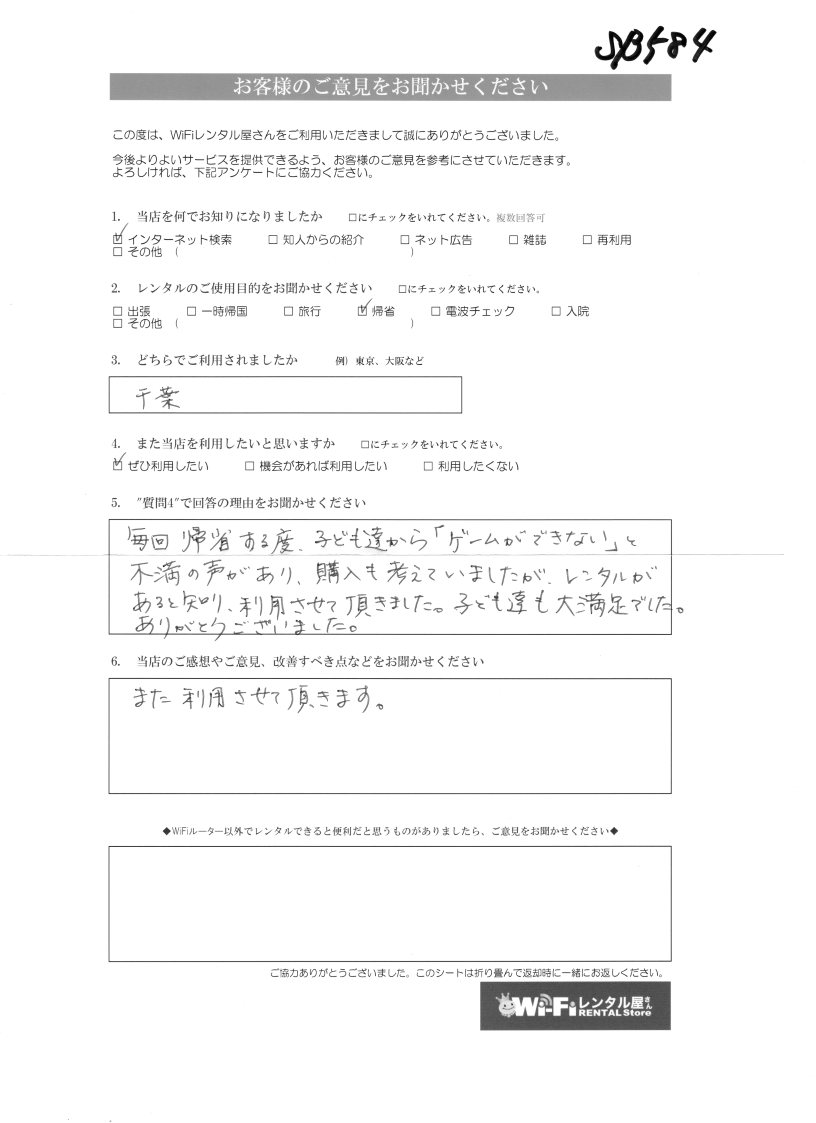 SB584
お客様のご意見をお聞かせください
この度は、WiFiレンタル屋さんをご利用いただきまして誠にありがとうございました。
今後よりよいサービスを提供できるよう、お客様のご意見を参考にさせていただきます。
よろしければ、下記アンケートにご協力ください。
1. 当店を何でお知りになりましたか □にチェックをいれてください。複数回答可
☑ インターネット検索 □ 知人からの紹介 □ ネット広告 □ 雑誌 □ 再利用
□ その他 ( )
2. レンタルのご使用目的をお聞かせください □にチェックをいれてください。
□ 出張 □ 一時帰国 □ 旅行 ☑ 帰省 □ 電波チェック □ 入院
□ その他 ( )
3. どちらでご利用されましたか 例) 東京、大阪など
千葉
4. また当店を利用したいと思いますか □にチェックをいれてください。
☑ ぜひ利用したい □ 機会があれば利用したい □ 利用したくない
5. "質問4"で回答の理由をお聞かせください
毎回帰省する度、子ども達から「ゲームができない」と
不満の声があり、購入も考えていましたが、レンタルが
あると知り、利用させて頂きました。子ども達も大満足でした。
ありがとうございました。
6. 当店のご感想やご意見、改善すべき点などをお聞かせください
また利用させて頂きます。
◆WiFiルーター以外でレンタルできると便利だと思うものがありましたら、ご意見をお聞かせください◆
ご協力ありがとうございました。このシートは折り畳んで返却時に一緒にお返しください。
Wi-Fiレンタル屋さん
RENTAL Store